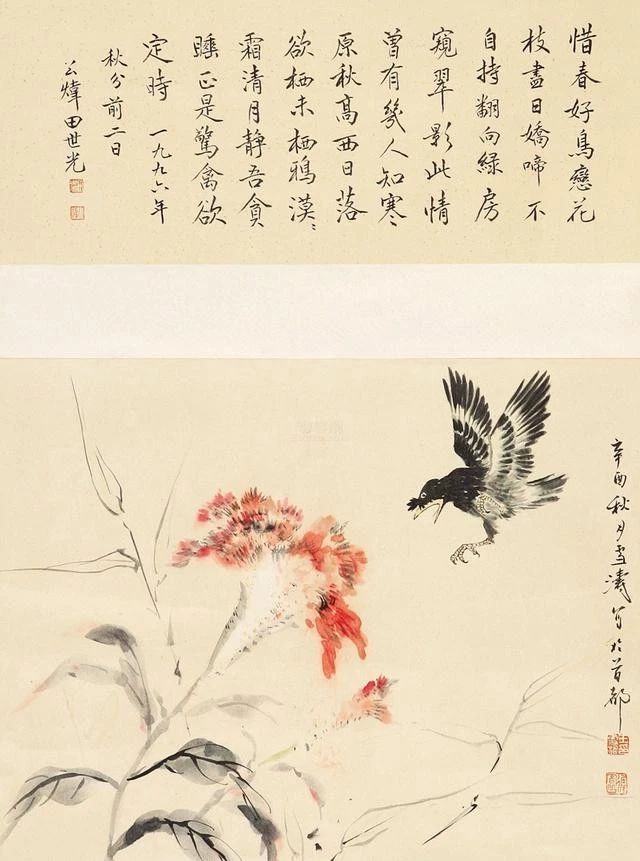 惜春好鳥戀花
枝盡日嬌啼不
自持翻向綠房
窺翠影此情
曾有幾人知寒
原秋高西日落
欲栖未栖鴉漠〻
霜清月静吾貪
睡正是驚禽欲
定時 一九九六年
秋分前二日
公煒田世光
辛酉秋月雪濤寫於首都